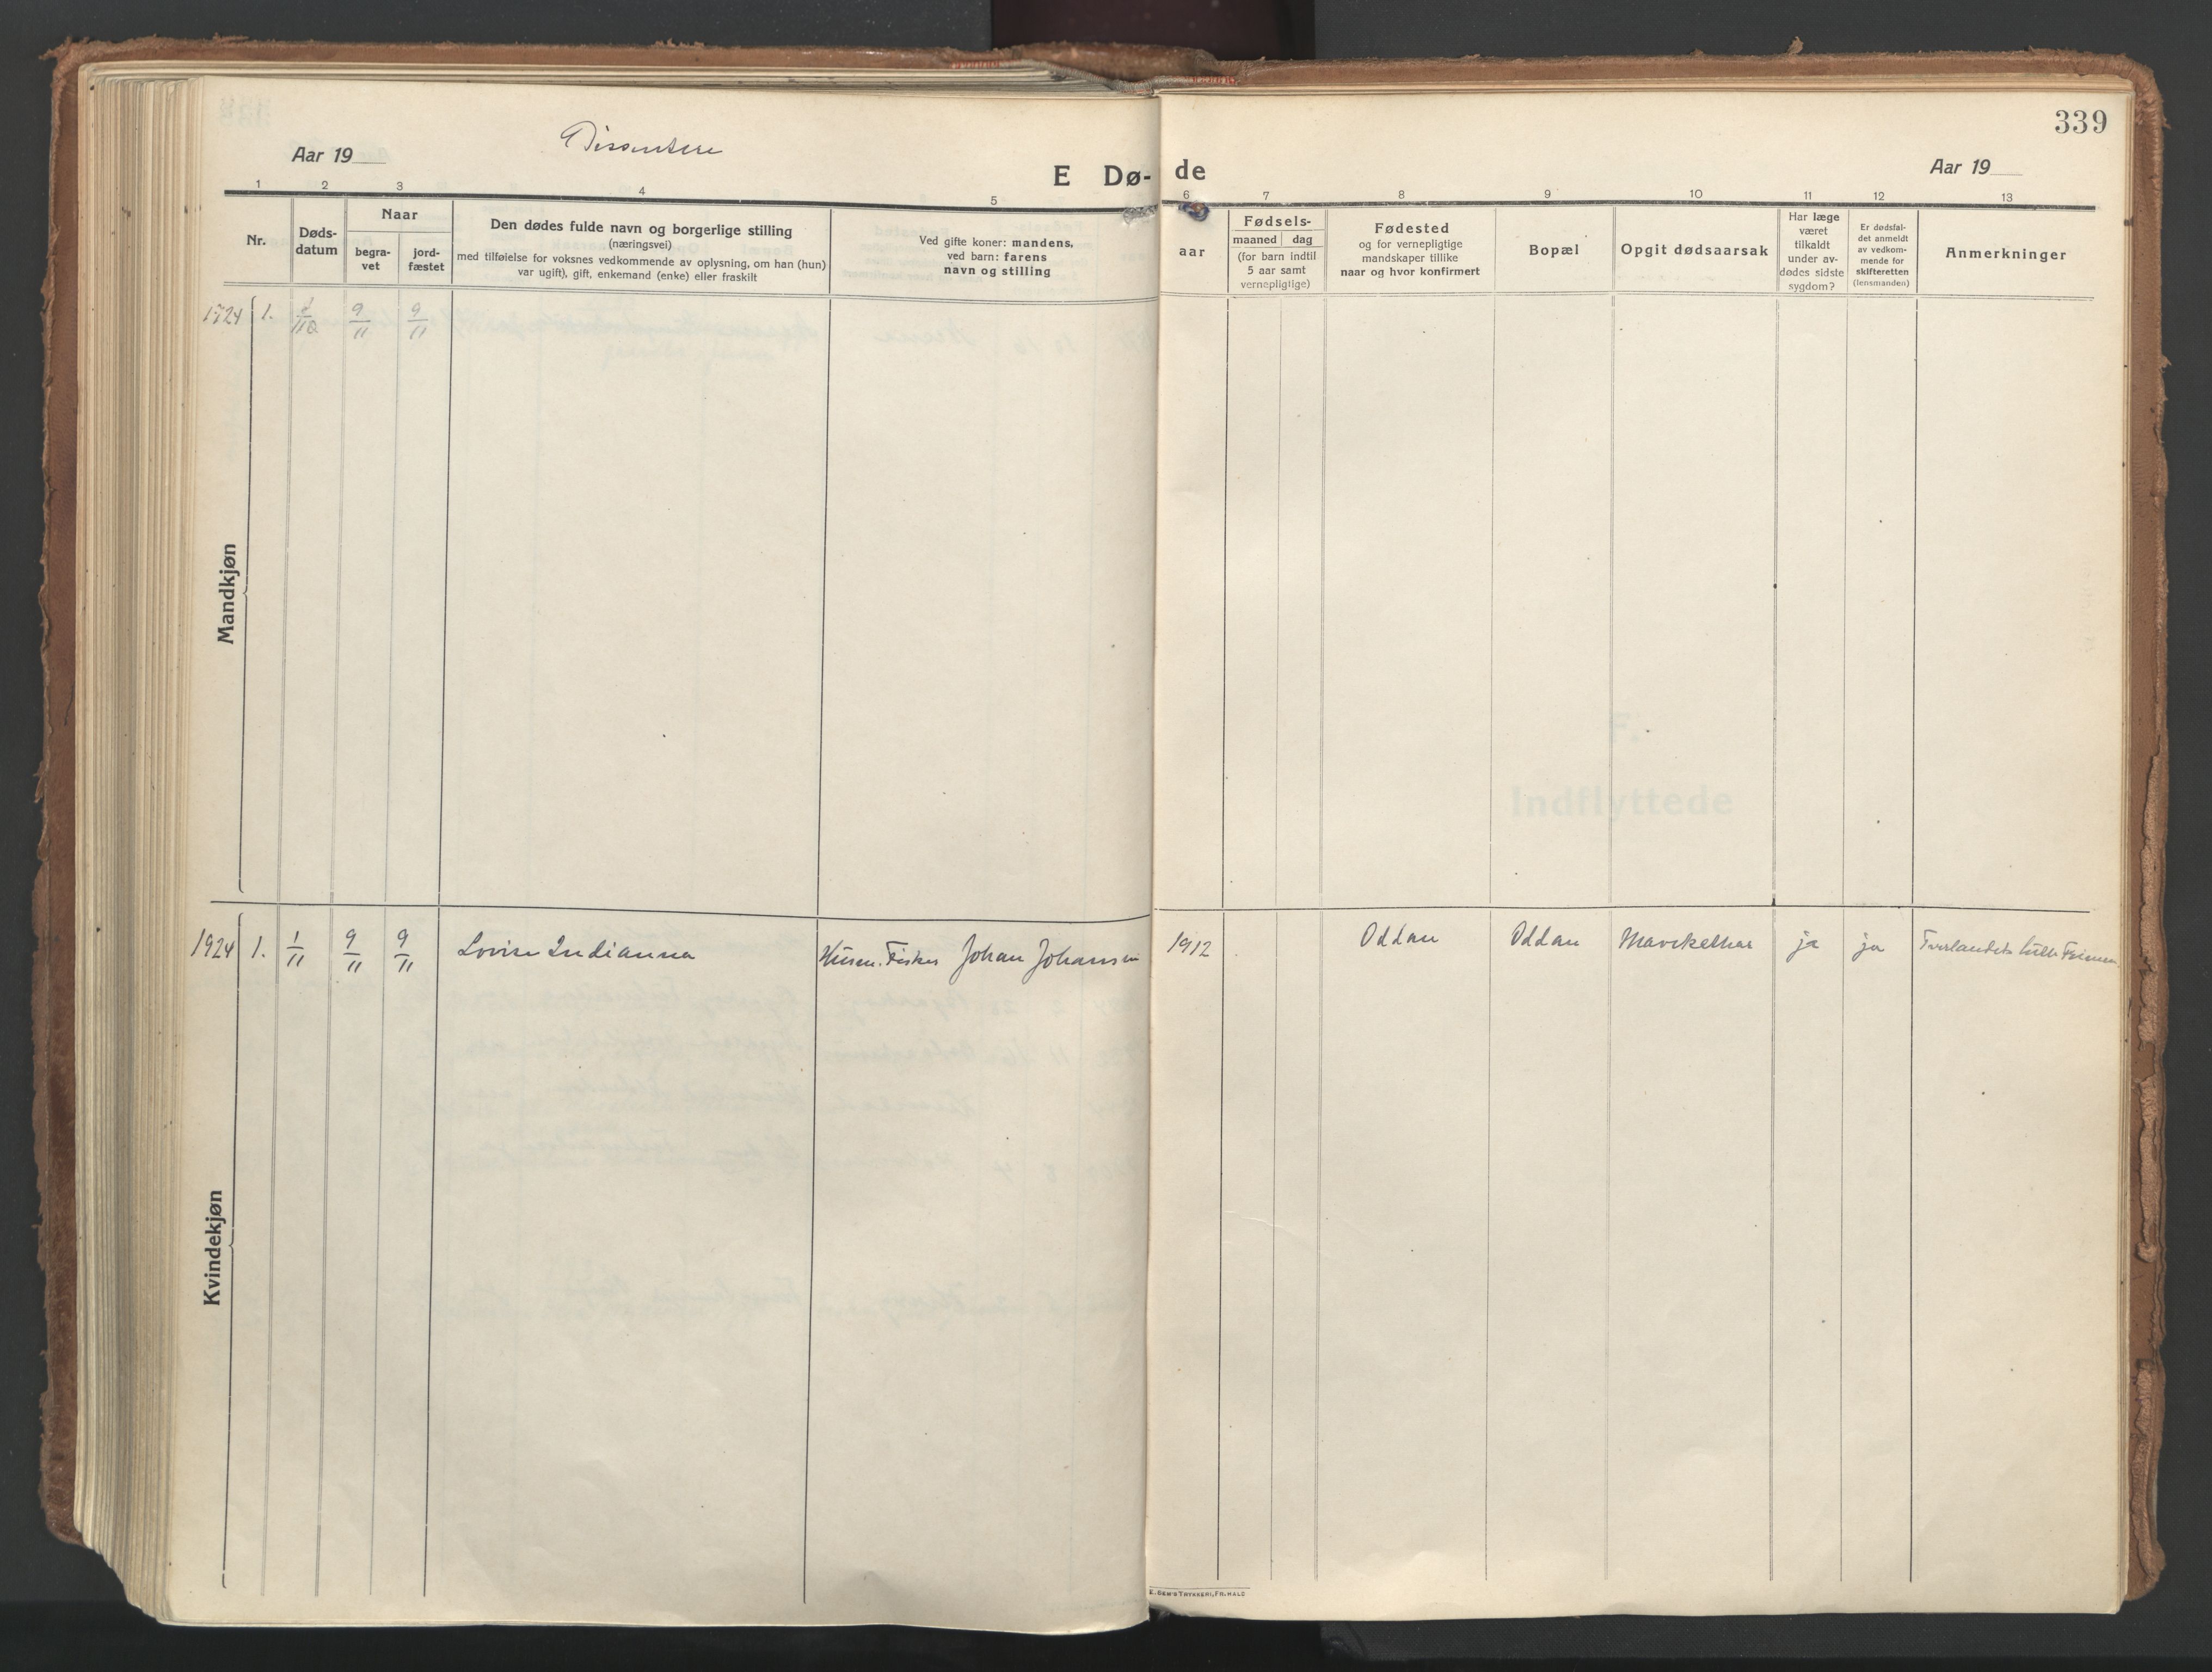 339
Aar 19
Dissentere
E Dø-de
Aar 19
1 2 3 4 5 6 7 8 9 10 11 12 13
Nr.
Døds-
datum
Naar
begra-
vet
jord-
fæstet
Den dødes fulde navn og borgerlige stilling
(næringsvei)
med tilføielse for voksnes vedkommende av oplysning, om han (hun)
var ugift), gift, enkemand (enke) eller fraskilt
Ved gifte koner: mandens,
ved barn: farens
navn og stilling
aar
Fødsels-
maaned dag
(for barn indtil
5 aar samt
vernepligtige)
Fødested
og for vernepligtige
mandskaper tillike
naar og hvor konfirmert
Bopæl
Opgit dødsaarsak
Har læge
været
tilkaldt
under av-
dødes sidste
sygdom?
Er dødsfal-
det anmeldt
av vedkom-
mende for
skifteretten
(lensmanden)
Anmerkninger
1924 1. 9/11 9/11
Mandkjøn
F.
Indflyttede
1924 1. 1/11 9/11 9/11 Lovise Indianna Fisker Johan Johansen 1912 Oddan Oddan ja ja
Kvindekjøn
E. SEM'S TRYKKERI, FR.HALD